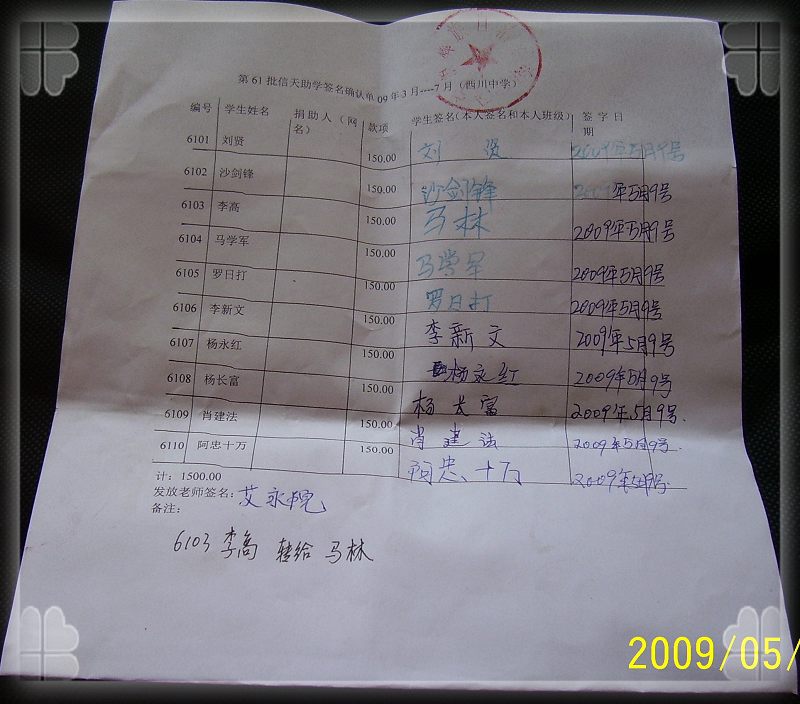 第61批信天助学签名确认单09年3月----7月（西川中学）
编号 学生姓名 捐助人（网名） 款项 学生签名(本人签名和本人班级) 签字日期
6101 刘贤 150.00 刘贤 2009年5月9号
6102 沙剑锋 150.00 沙剑锋 年5月9号
6103 李高 150.00 马林 2009年5月9号
6104 马学军 150.00 马学军 2009年5月9号
6105 罗日打 150.00 罗日打 2009年5月9号
6106 李新文 150.00 李新文 2009年5月9号
6107 杨永红 150.00 杨永红 2009年5月9号
6108 杨长富 150.00 杨长富 2009年5月9号
6109 肖建法 150.00 肖建法 2009年5月9号
6110 阿忠十万 150.00 阿忠十万 2009年5月9号
计：1500.00
发放老师签名：艾永
备注：
6103 李高 转给 马林
2009/05/